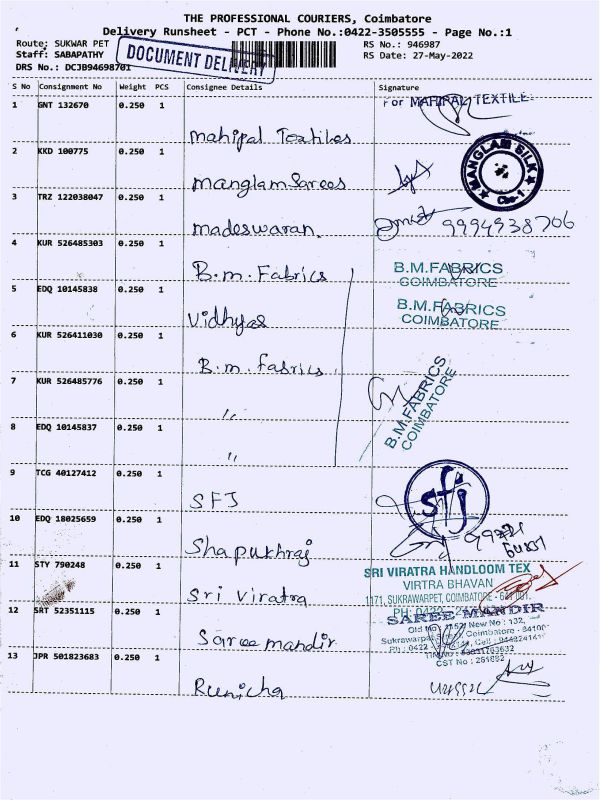 THE PROFESSIONAL COURIERS, Coimbatore
Delivery Runsheet - PCT - Phone No.:0422-3505555 - Page No.:1
Route: SUKWAR PET
RS No.: 946987
Staff: SABAPATHY
RS Date: 27-May-2022
DRS No.: DCJB94698701
DOCUMENT DELIVERY
S No Consignment No Weight PCS Consignee Details Signature
1 GNT 132670 0.250 1 Mahipal Textiles
For MAHIPAL TEXTILE
2 KKD 100775 0.250 1 Manglam Sarees
MANGLAM SILK
Cbe-1
3 TRZ 122038047 0.250 1 Madeswaran. 9994938706
4 KUR 526485303 0.250 1 B.m. Fabrics
B.M.FABRICS
COIMBATORE
5 EDQ 10145838 0.250 1 Vidhyas
B.M.FABRICS
COIMBATORE
6 KUR 526411030 0.250 1 B.m. fabrics
7 KUR 526485776 0.250 1 "
B.M.FABRICS
COIMBATORE
8 EDQ 10145837 0.250 1 "
9 TCG 40127412 0.250 1 SFJ
sfj
10 EDQ 18025659 0.250 1 Shapukhraj
11 STY 790248 0.250 1 Sri Viratra
SRI VIRATRA HANDLOOM TEX
VIRTRA BHAVAN
1171, SUKRAWARPET, COIMBATORE - 641 001.
PH: 0422
12 SRT 52351115 0.250 1 Saree mandir
SAREE MANDIR
Old No : 1152/ New No : 132,
Sukrawarpet Coimbatore
Ph : 0422 Cell :
CST No : 251882
13 JPR 501823683 0.250 1 Runicha